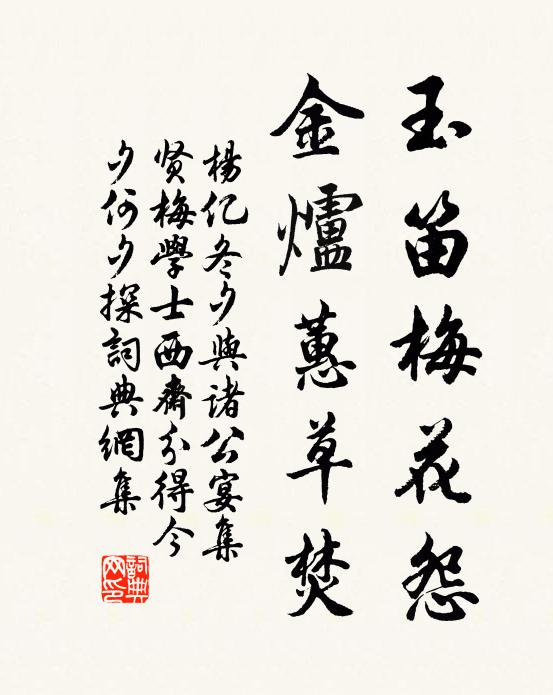 玉笛梅花怨
金爐蕙草焚
楊亿冬夕與诸公宴集
贤梅學士西齋分得今
夕何夕探詞典網集
詞典
网印